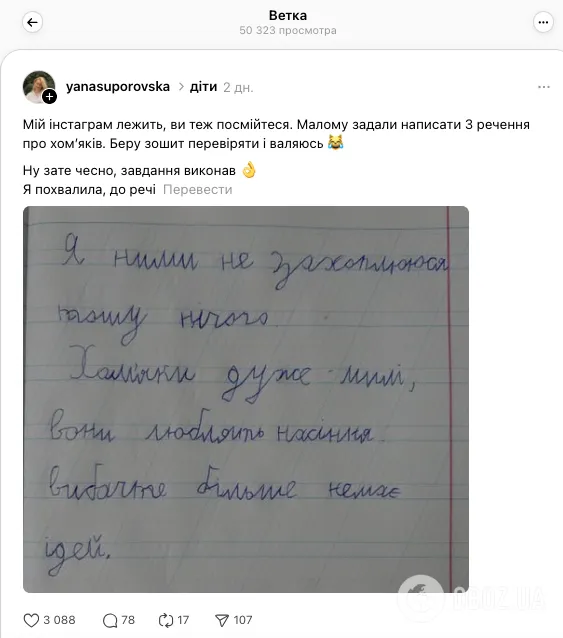 Ветка
50 323 просмотра
yanasuporovska > діти 2 дн.
Мій інстаграм лежить, ви теж посмійтеся. Малому задали написати 3 речення
про хом'яків. Беру зошит перевіряти і валяюсь 😹
Ну зате чесно, завдання виконав 👌
Я похвалила, до речі Перевести
Я ними не захоплююся
тому нічого.
Хом'яки дуже милі,
вони люблять насіння.
вибачте більше немає
ідей.
OBOZ.UA
3 088 78 17 107